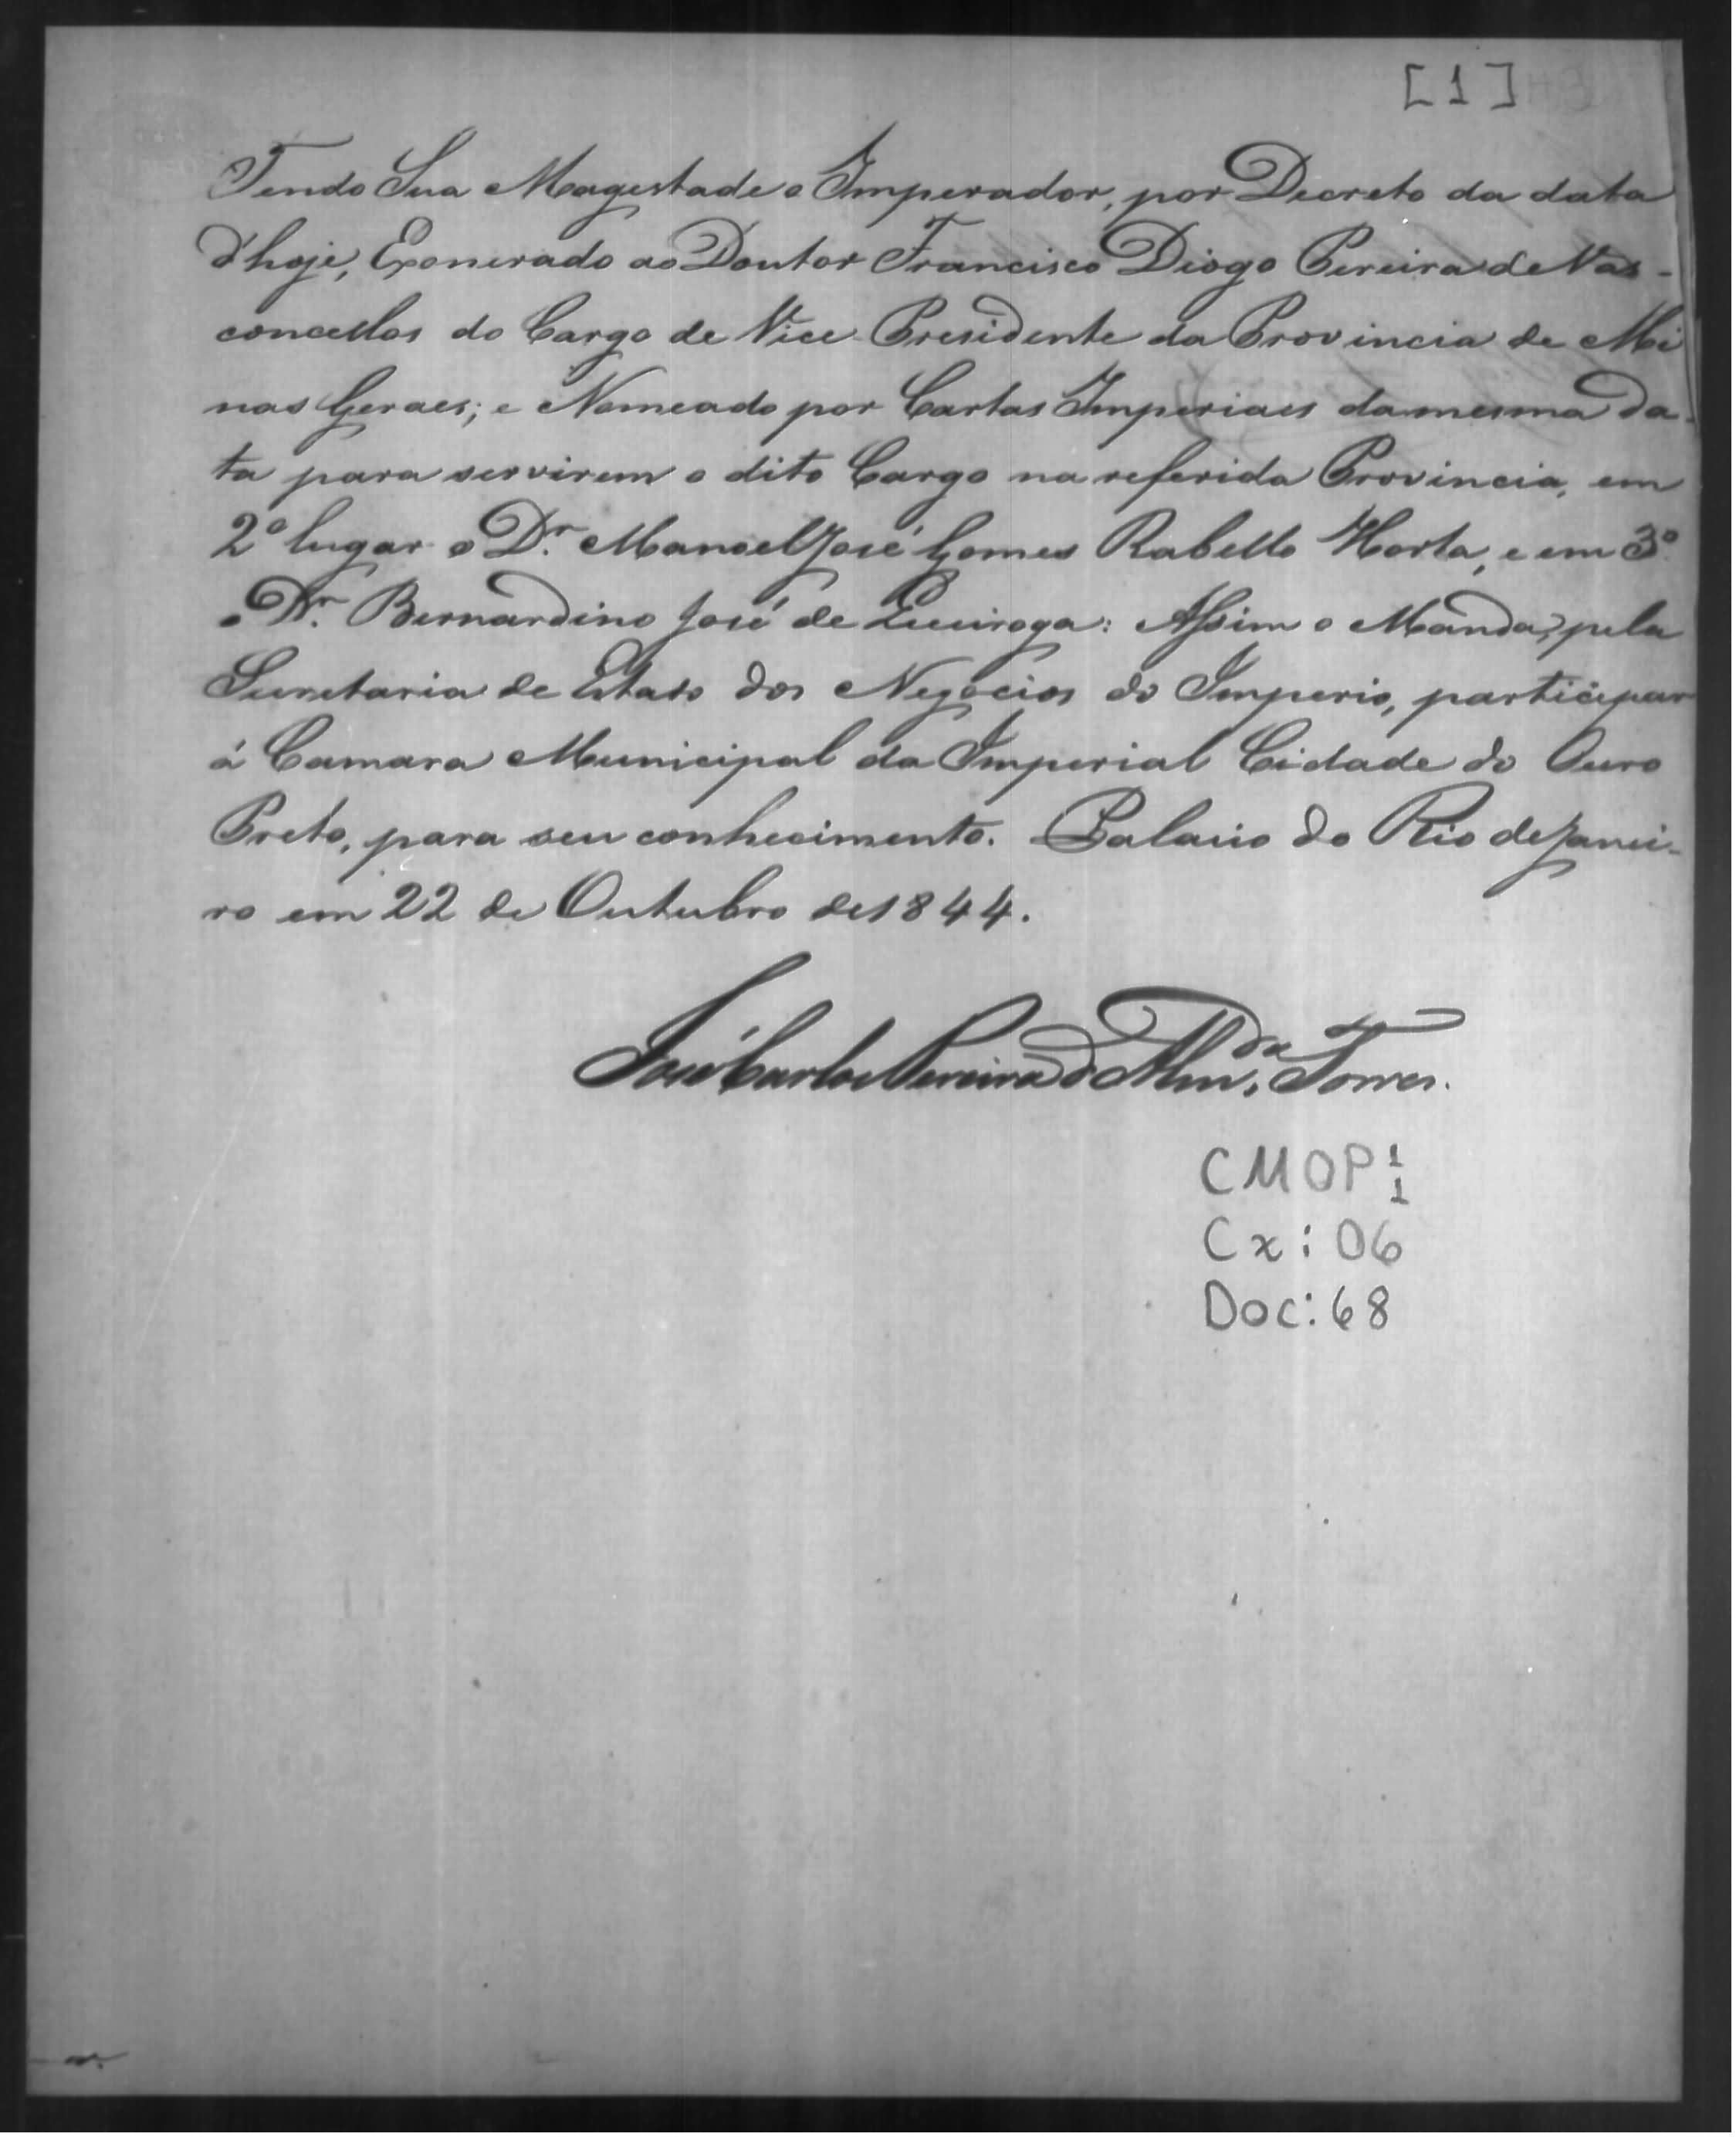 [1]
Tendo Sua Magestade o Imperador, por Decreto da data
d'hoje, Exonerado ao Doutor Francisco Diogo Pereira de Vas-
concellos do Cargo de Vice Presidente da Provincia de Mi
nas Geraes; e Nomeado por Cartas Imperiaes da mesma da-
ta para servirem o dito Cargo na referida Provincia, em
2º lugar o Dr. Manoel José Gomes Rabello Horta, e em 3º
o Dr. Bernardino José de Queiroga: Assim o Manda, pela
Secretaria de Estado dos Negocios do Imperio, participar
á Camara Municipal da Imperial Cidade do Ouro
Preto, para seu conhecimento. Palacio do Rio de Janei-
ro em 22 de Outubro de 1844.
José Carlos Pereira d'Almda. Torres.
CMOP 1/1
Cx: 06
Doc: 68